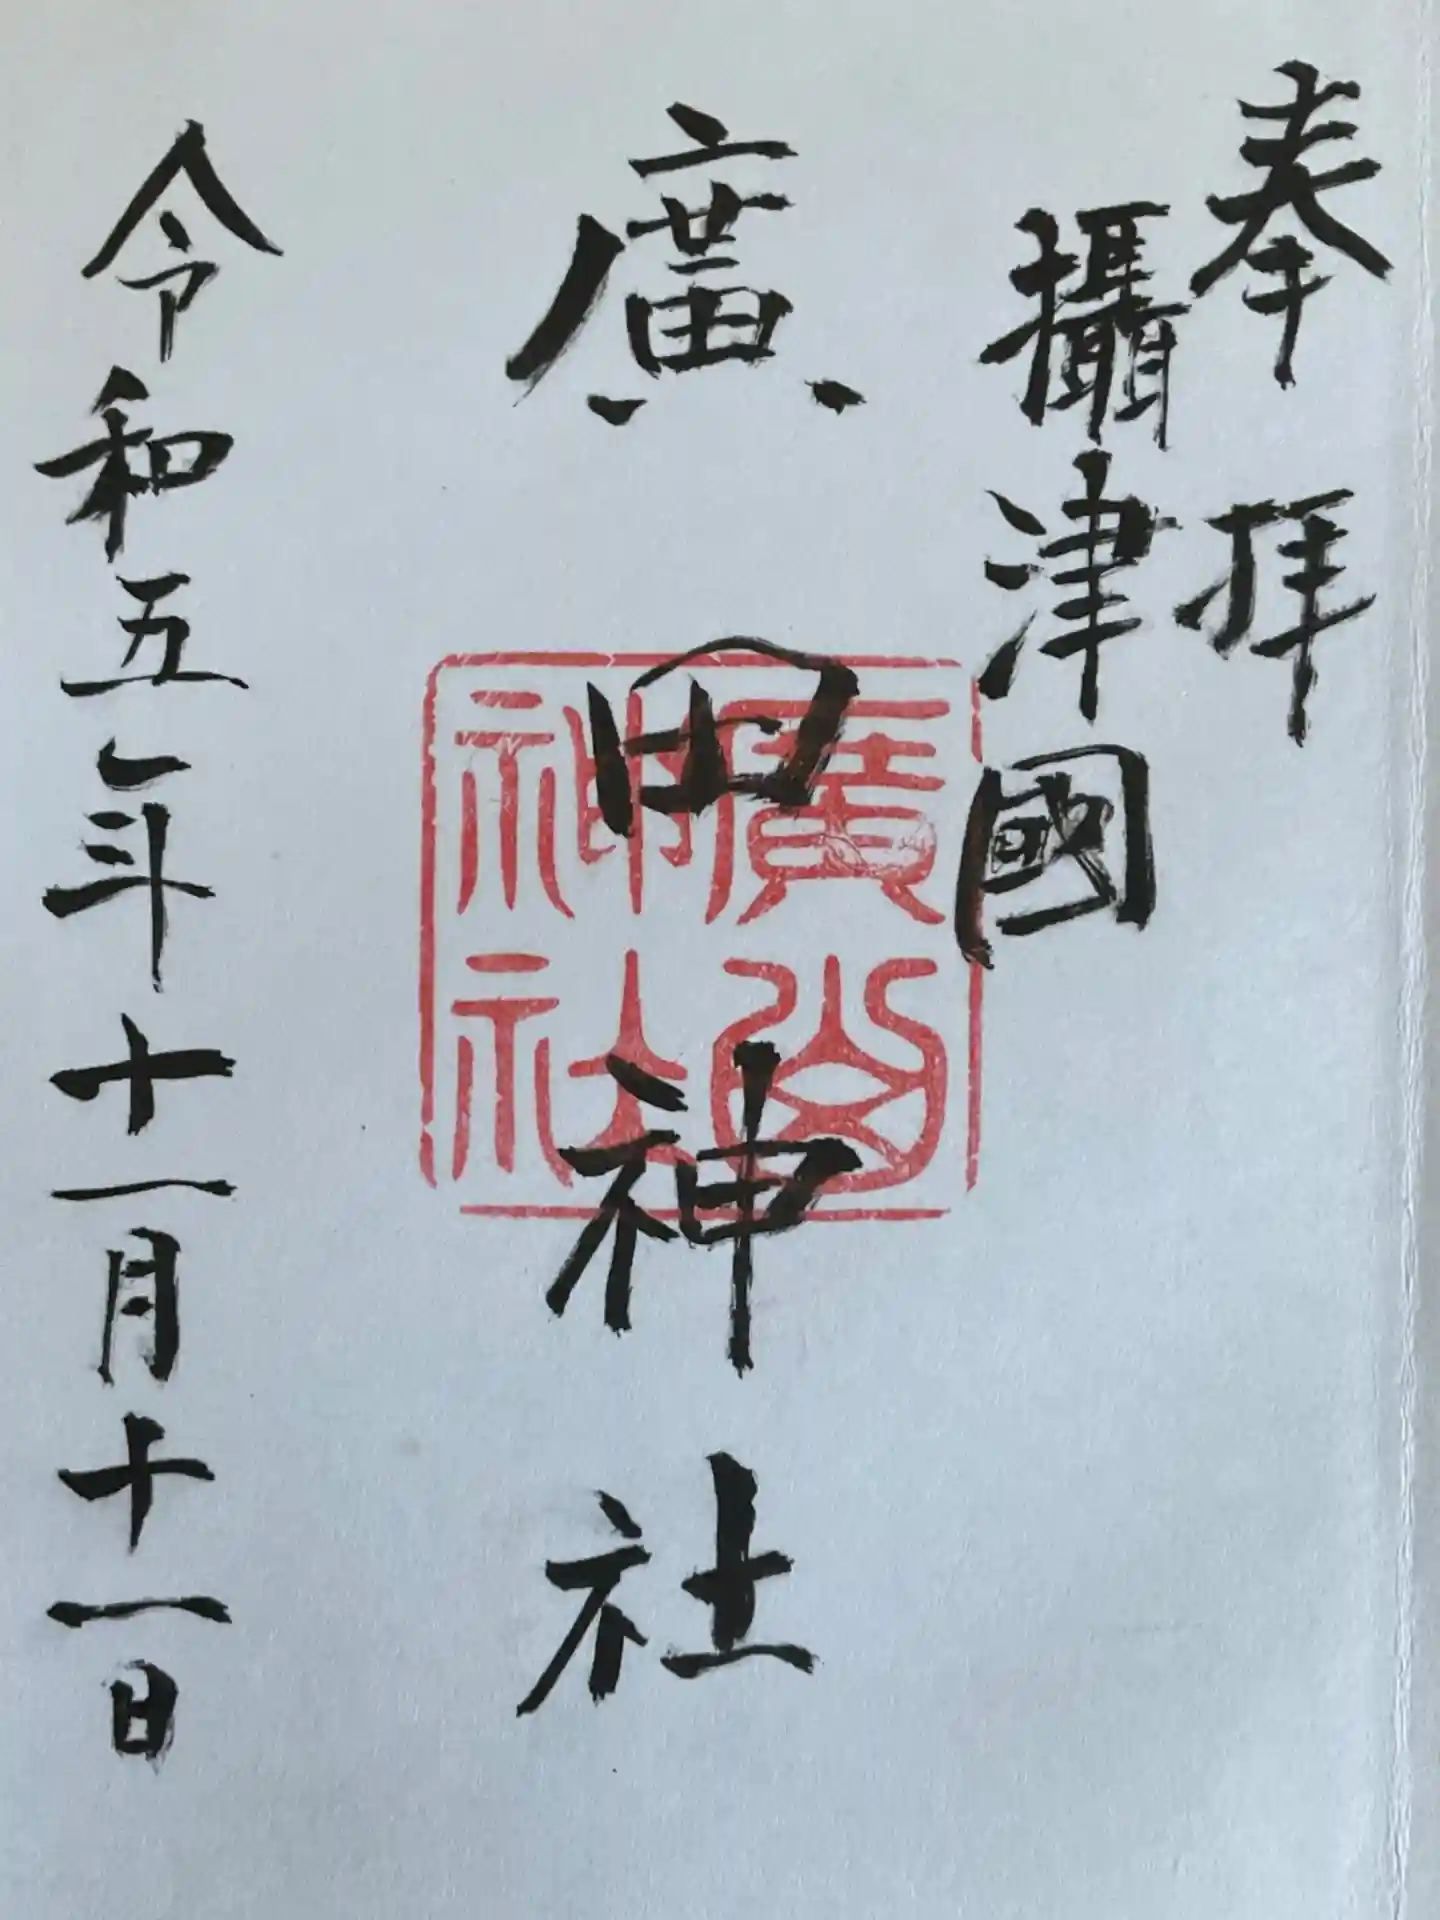 奉拝
攝津國
廣田神社
令和五年十一月十一日
廣田
神社